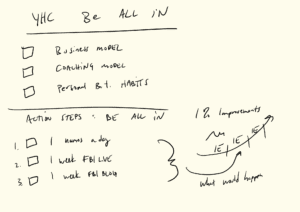 YHC Be ALL IN
BUSINESS MODEL
COACHING MODEL
Personal HABITS
ACTION STEPS: BE ALL IN
1. 1 a day
2. 1 week FB LIVE
3. 1 week FB BLOG
12 Improvements
IE IE IE
what would happen